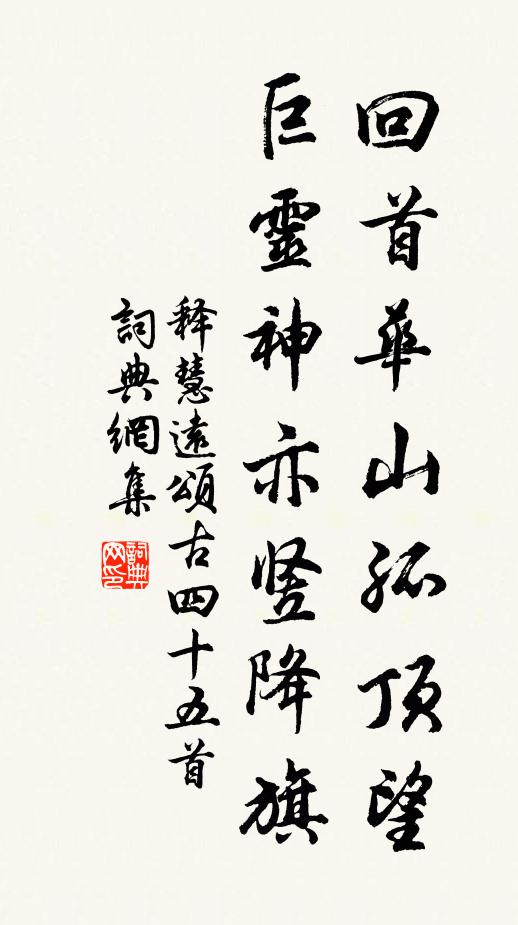 回首華山孤顶望
巨靈神亦竖降旗
释慧遠頌古四十五首
詞典網集
詞典网印